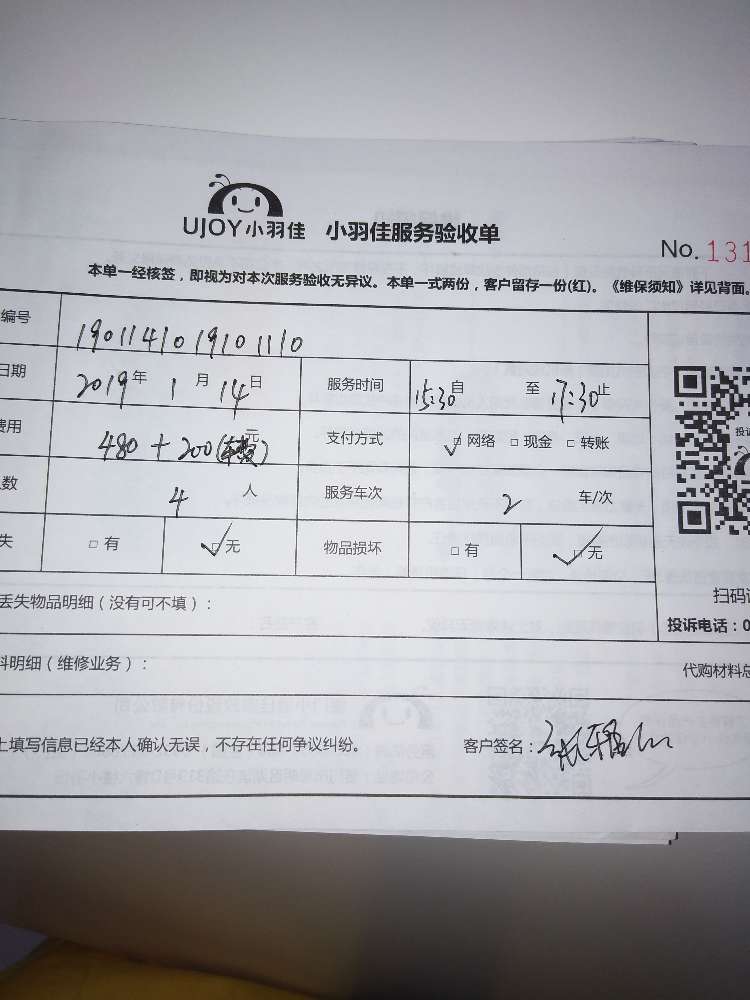 UJOY小羽佳 小羽佳服务验收单
No. 131
本单一经核签，即视为对本次服务验收无异议。本单一式两份，客户留存一份(红)。《维保须知》详见背面。
编号 1901141019101110
日期 2019年 1月 14日 服务时间 15:30自 至 17:30止
费用 480+200(车费)元 支付方式 ✓□网络 □现金 □转账
数 4人 服务车次 2 车/次
失 □有 ✓□无 物品损坏 □有 ✓□无
丢失物品明细（没有可不填）：
扫码
投诉电话：0
料明细（维修业务）： 代购材料总
上填写信息已经本人确认无误，不存在任何争议纠纷。 客户签名：